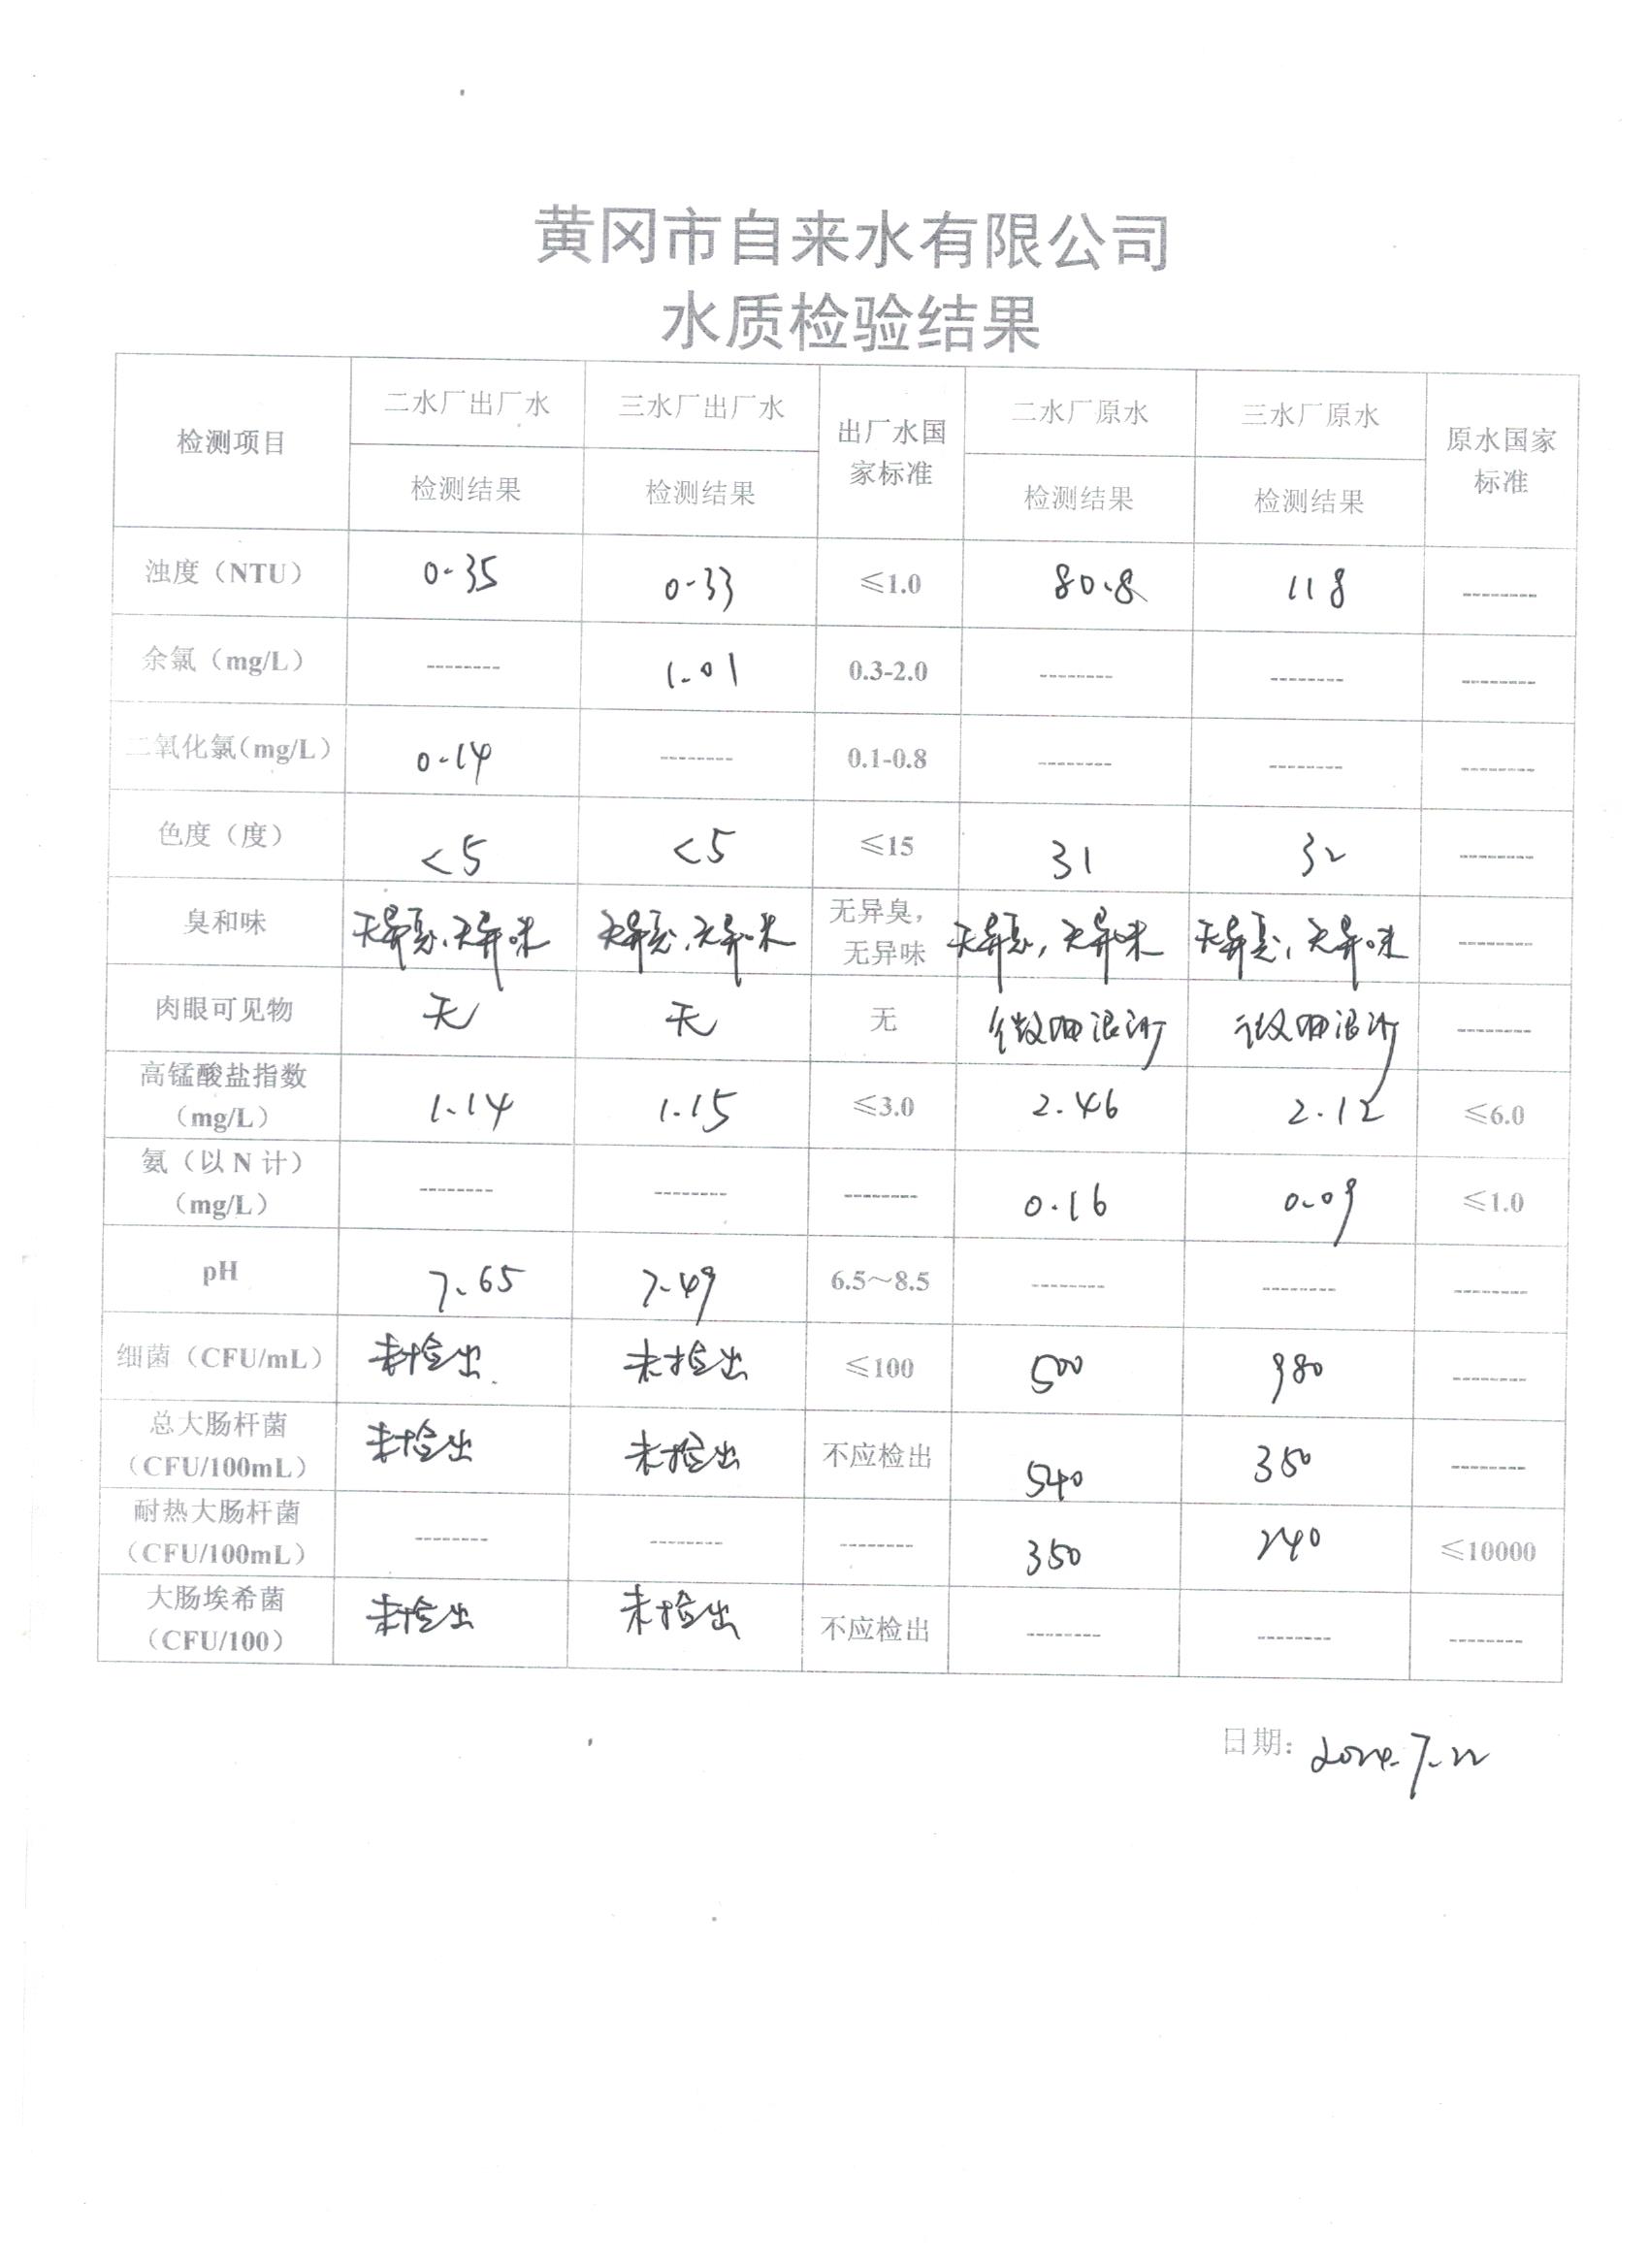 黄冈市自来水有限公司
水质检验结果
检测项目 二水厂出厂水 三水厂出厂水 出厂水国家标准 二水厂原水 三水厂原水 原水国家标准
检测结果 检测结果 检测结果 检测结果
浊度（NTU） 0.35 0.33 ≤1.0 80.8 118 --------
余氯（mg/L） -------- 1.01 0.3-2.0 -------- -------- --------
二氧化氯（mg/L） 0.14 -------- 0.1-0.8 -------- -------- --------
色度（度） <5 <5 ≤15 31 32 --------
臭和味 无异臭、无异味 无异臭、无异味 无异臭，无异味 无异臭，无异味 无异臭，无异味 --------
肉眼可见物 无 无 无 微细泥沙 微细泥沙 --------
高锰酸盐指数（mg/L） 1.14 1.15 ≤3.0 2.46 2.12 ≤6.0
氨（以N计）（mg/L） -------- -------- -------- 0.16 0.09 ≤1.0
pH 7.65 7.49 6.5～8.5 -------- -------- --------
细菌（CFU/mL） 未检出 未检出 ≤100 500 980 --------
总大肠杆菌（CFU/100mL） 未检出 未检出 不应检出 540 350 --------
耐热大肠杆菌（CFU/100mL） -------- -------- -------- 350 240 ≤10000
大肠埃希菌（CFU/100） 未检出 未检出 不应检出 -------- -------- --------
日期：2024.7.22